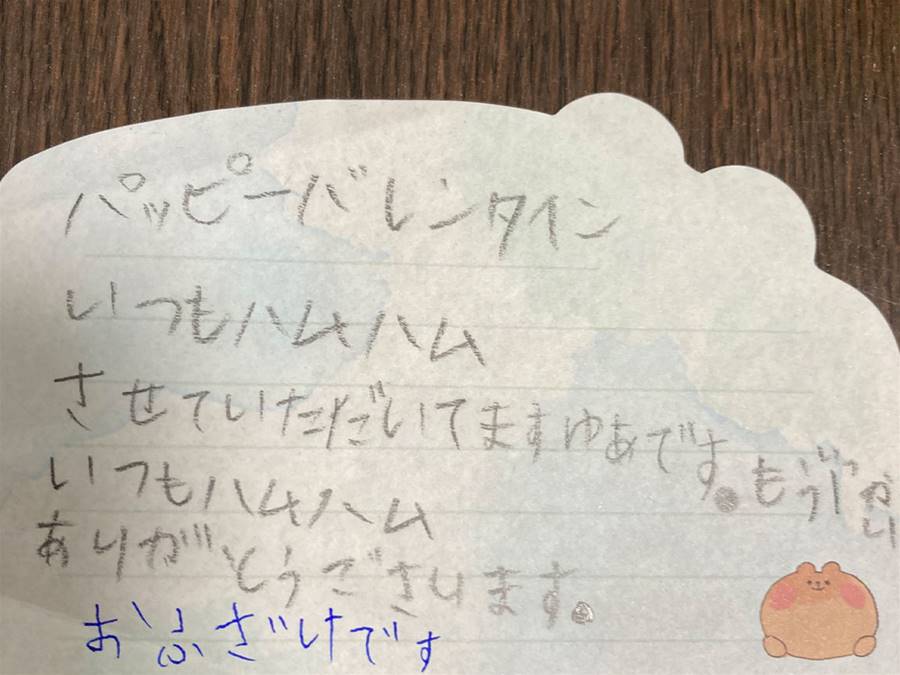 パッピーバレンタイン
いつもハムハム
させていただいてますゆあです。もう
いつもハムハム
ありがとうございます。
おふざけです